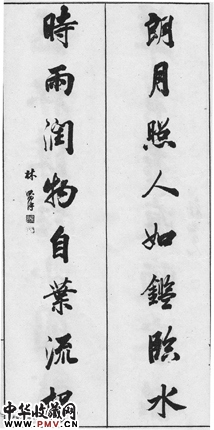 朗月照人如鑑臨水
時雨潤物自葉流根
林則徐
中华收藏网
www.PMV.cn